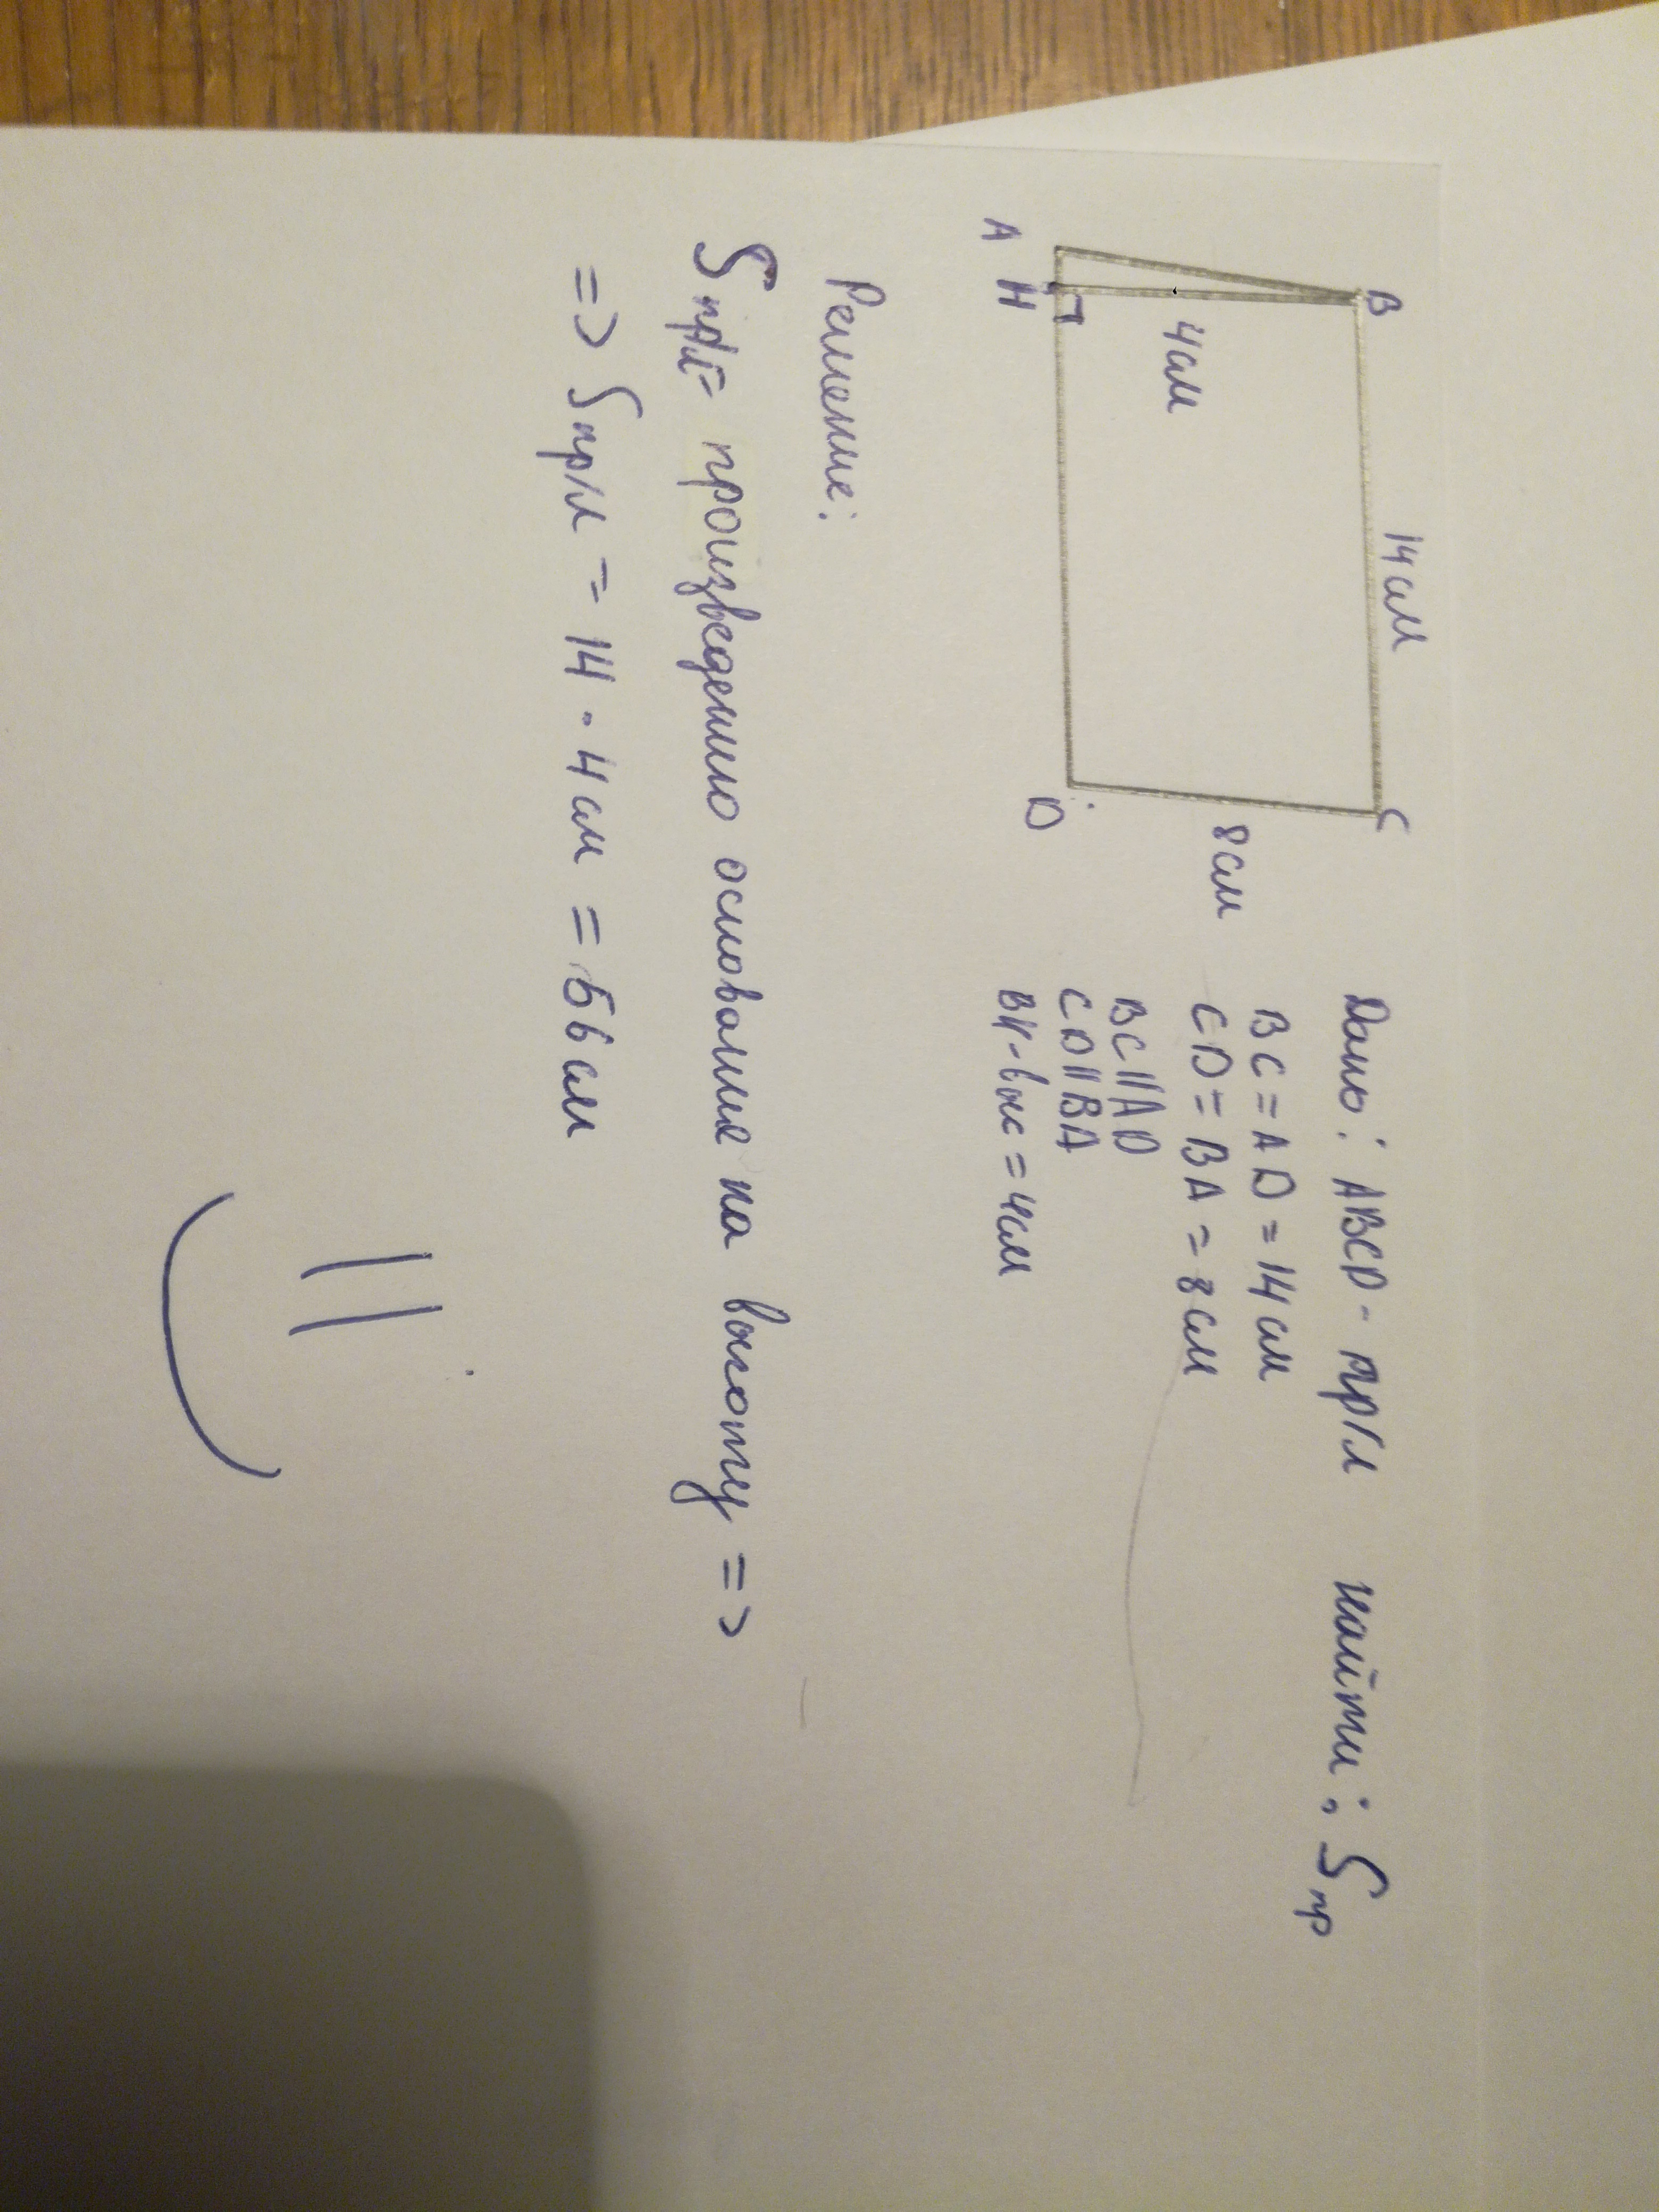 B
14 см
C
4 см
8 см
A
H
D
Дано: ABCD - пр/л
найти: Sпр
BC = AD = 14 см
CD = BA = 8 см
BC || AD
CD || BA
BH - выс = 4 см
Решение:
Sпр/л = произведению основания на высоту =>
=> Sпр/л = 14 · 4 см = 56 см